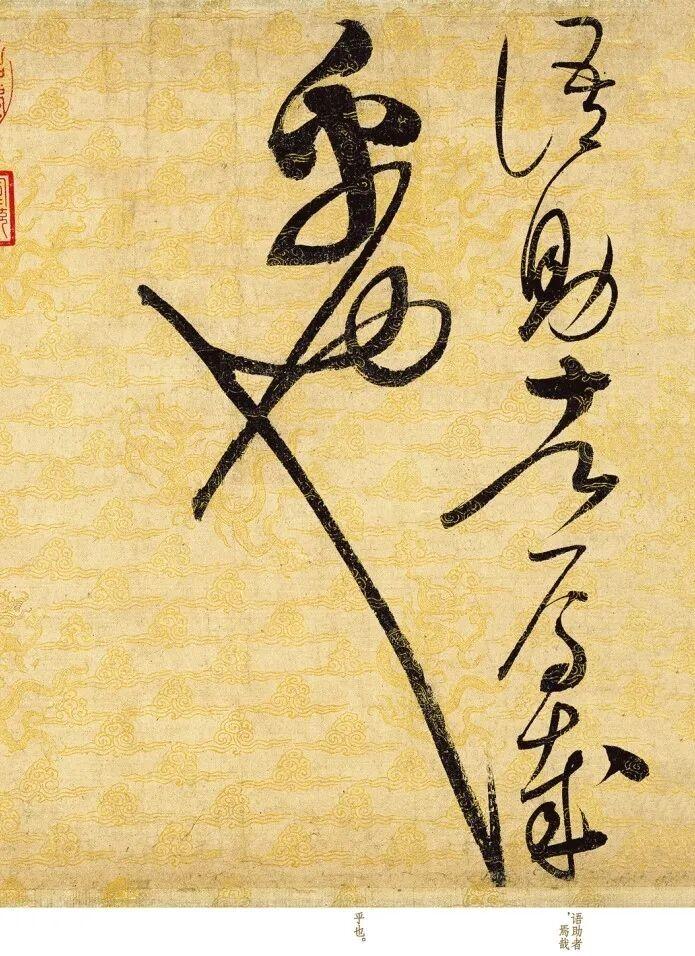 語助者焉哉
乎也
语助者
，焉哉
乎也。